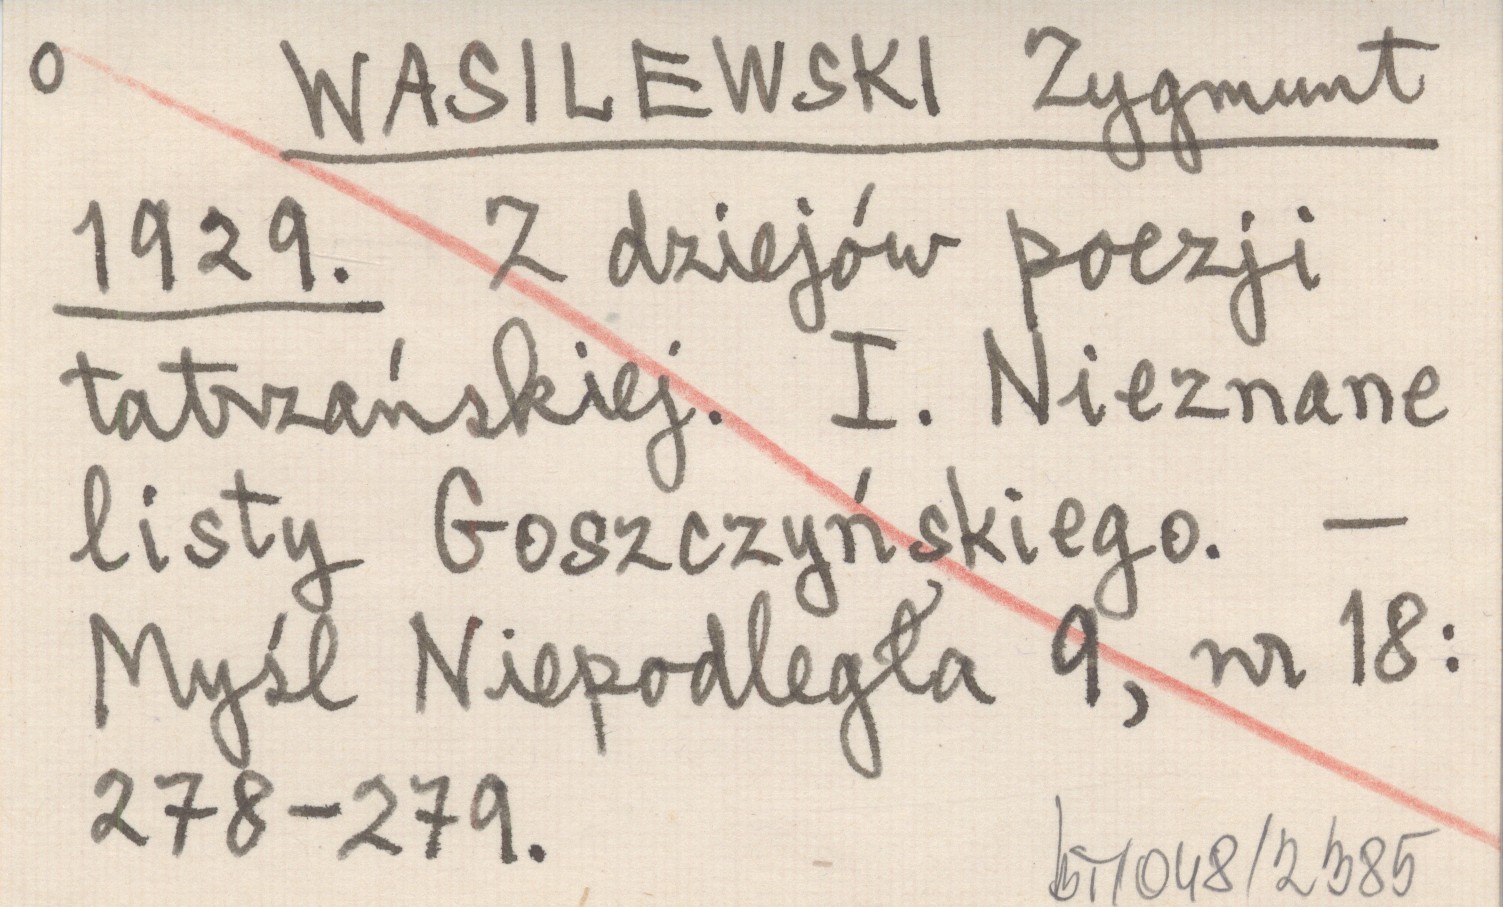 o WASILEWSKI Zygmunt
1929. Z dziejów poezji
tatrzańskiej. I. Nieznane
listy Goszczyńskiego. —
Myśl Niepodległa 9, nr 18:
278-279.